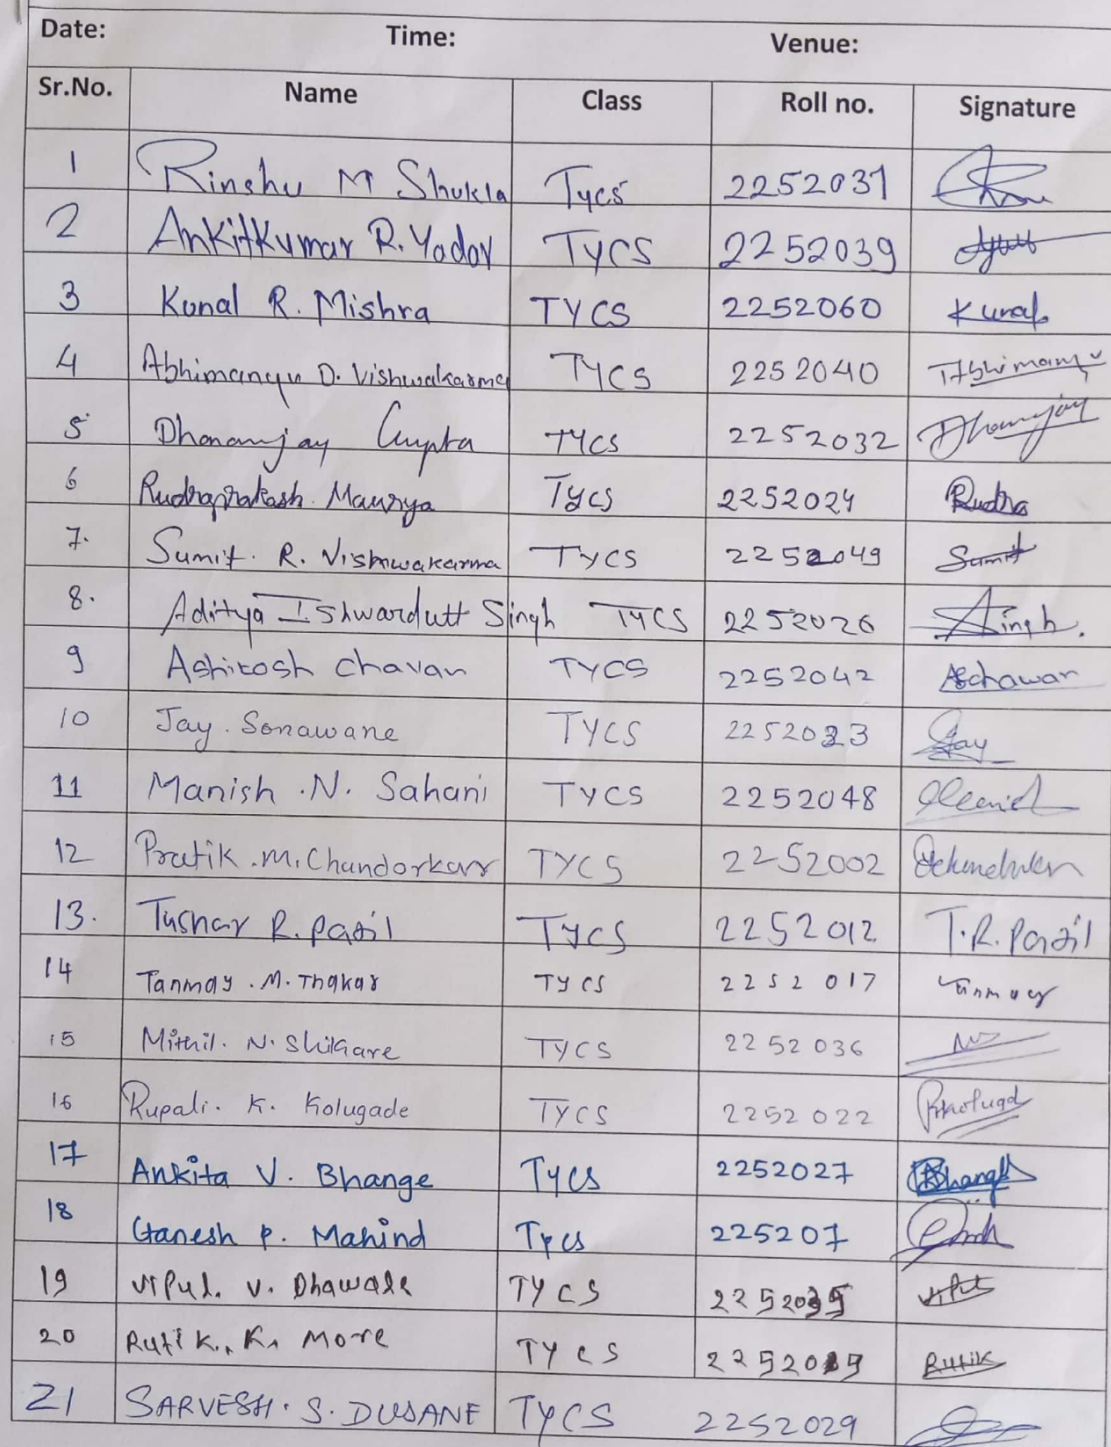 Date: Time: Venue:
Sr.No. Name Class Roll no. Signature
1 Rinshu M Shukla Tycs 2252031
2 Ankitkumar R. Yadav TYCS 2252039
3 Kunal R. Mishra TYCS 2252060 Kunal
4 Abhimanyu D. Vishwakarma TYCS 2252040 Abhimanyu
5 Dhananjay Gupta TYCS 2252032 Dhananjay
6 Rudraprakash Maurya Tycs 2252024 Rudra
7. Sumit. R. Vishwakarma TYCS 2252049 Sumit
8. Aditya Ishwardutt Singh TYCS 2252026 Singh.
9 Ashitosh Chavan TYCS 2252042 Aschavan
10 Jay. Sonawane TYCS 2252023 Jay
11 Manish .N. Sahani TYCS 2252048
12 Pratik .M. Chandorkar TYCS 2252002
13. Tushar R. Patil TYCS 2252012 T.R. Patil
14 Tanmay . M. Thakar TYCS 2252 017 Tanmay
15 Mithil. N. Shikare TYCS 2252 036
16 Rupali. K. Kolugade TYCS 2252 022
17 Ankita V. Bhange TYCS 2252027 Bhange
18 Ganesh P. Mahind Tycs 225207
19 Vipul. V. Dhawale TYCS Vipul
20 Rutik. K. More TYCS Rutik
21 SARVESH. S. DUSANE TYCS 2252029